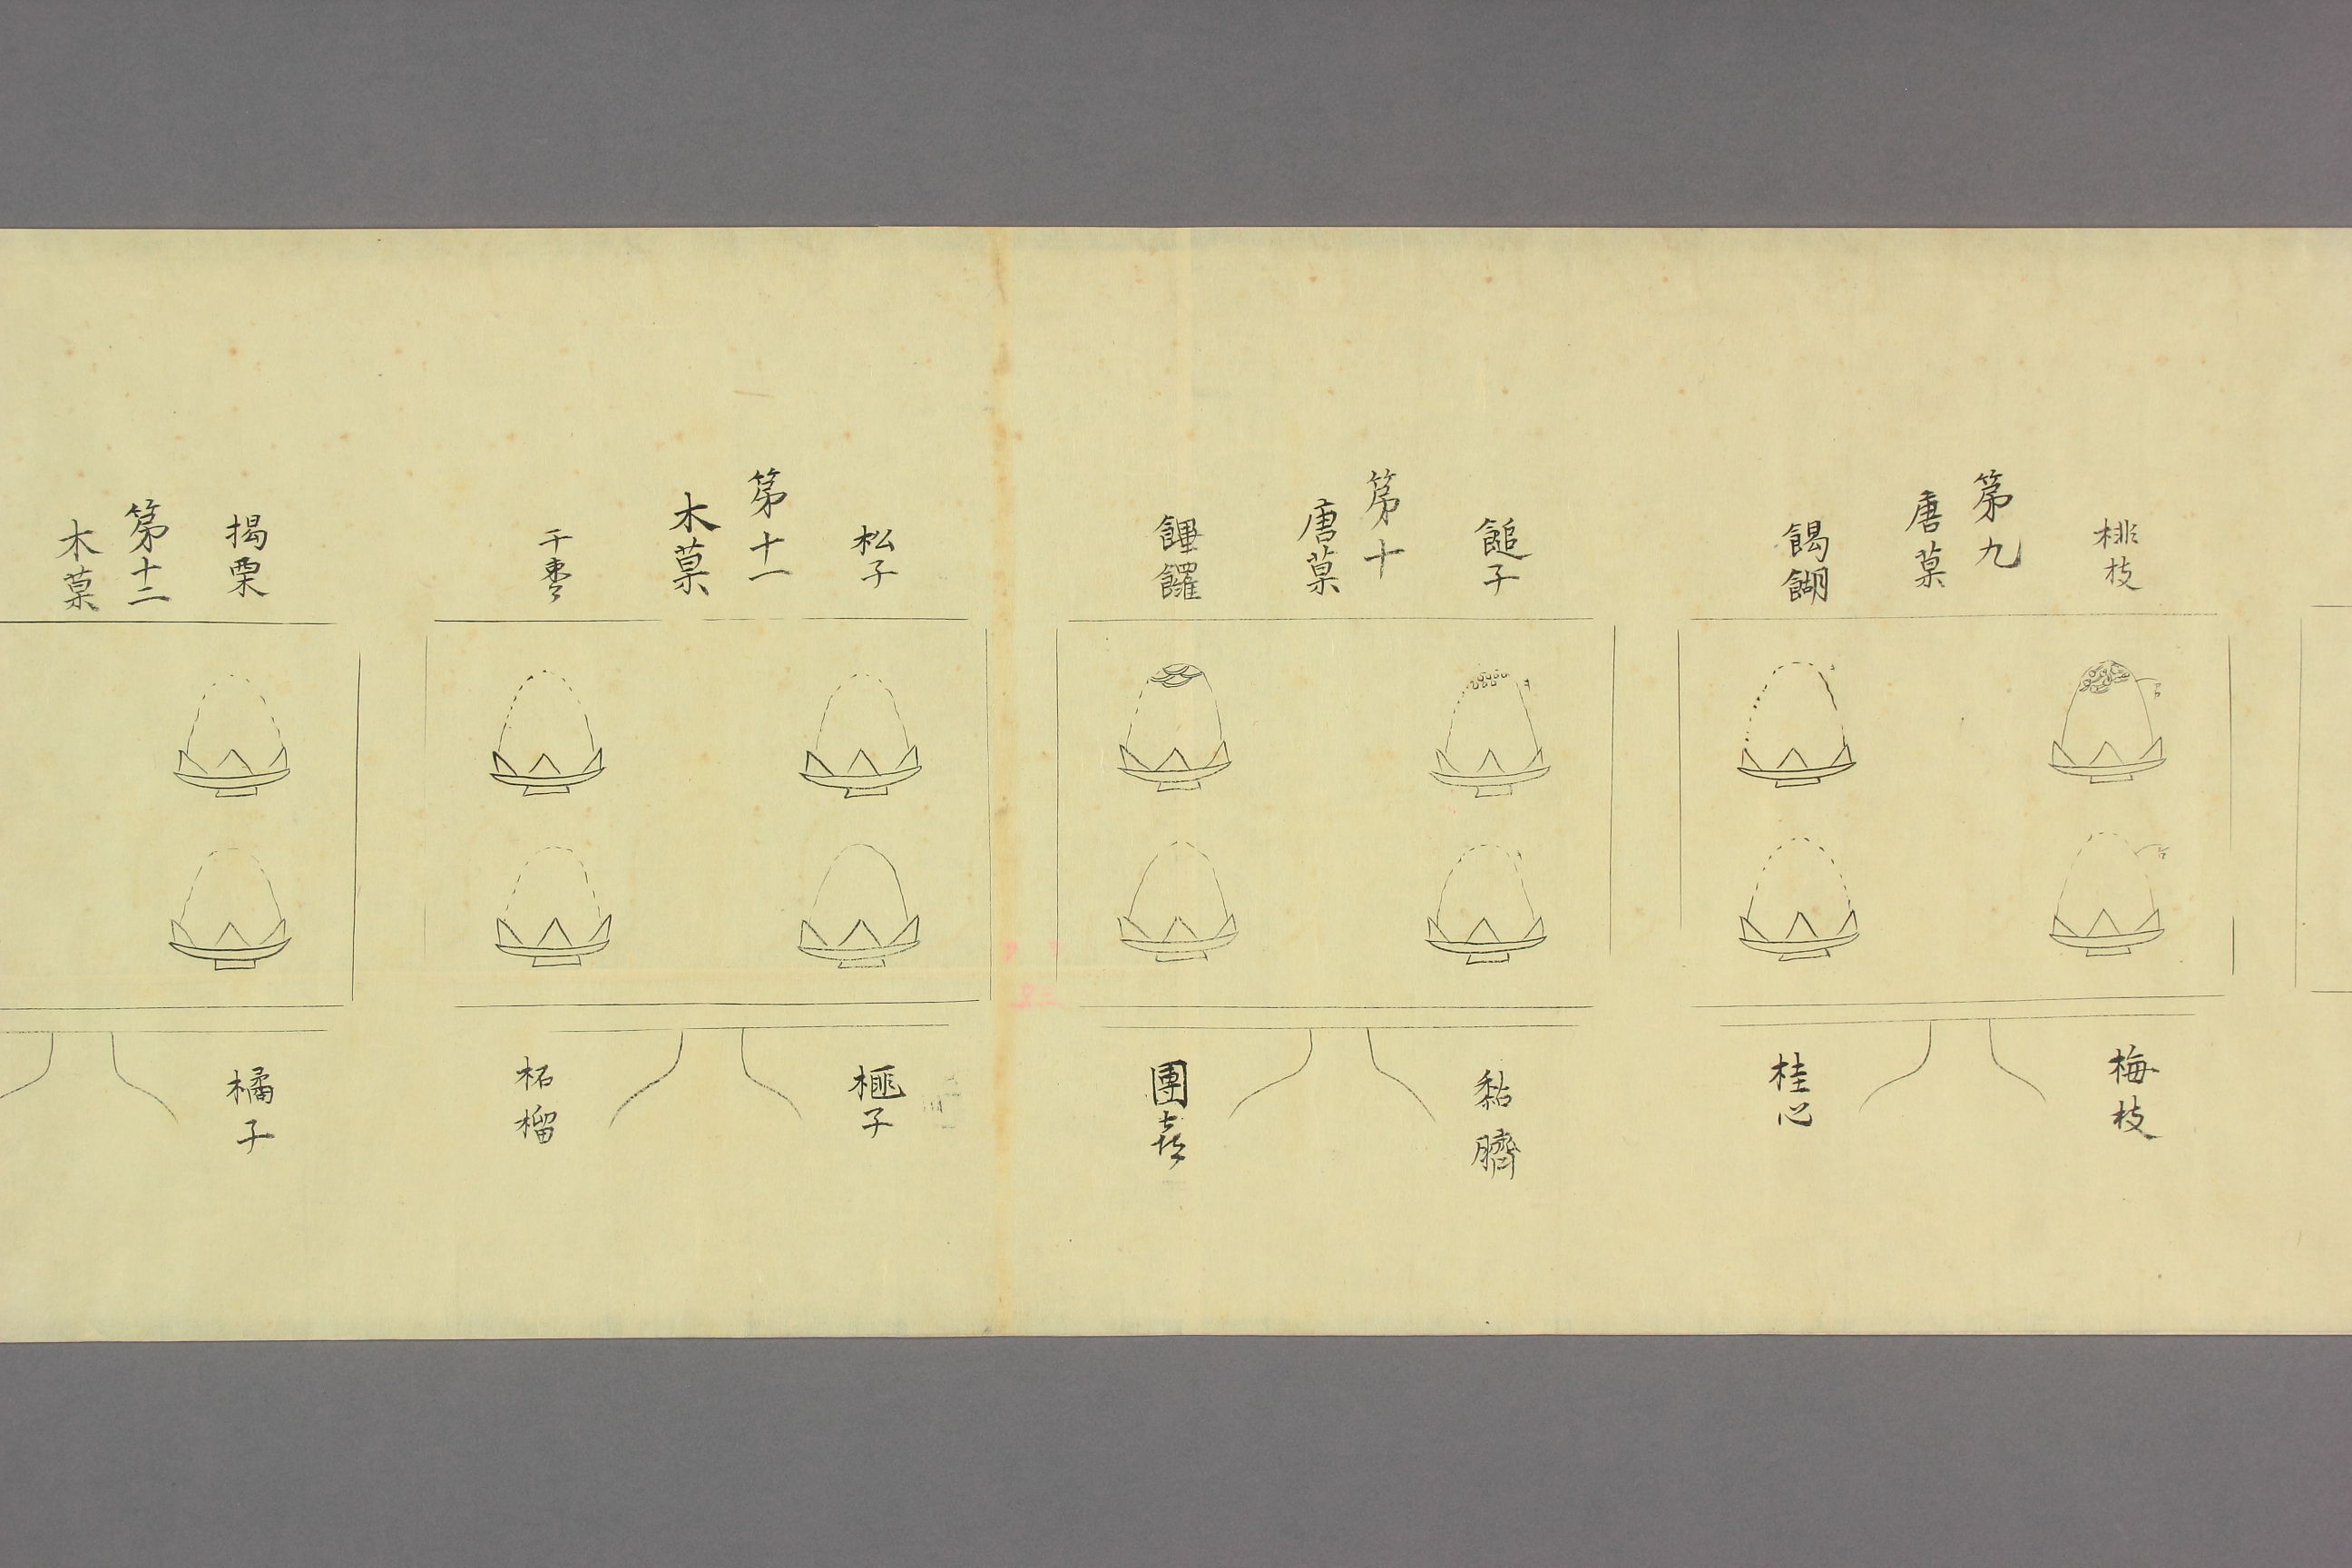 桃枝
第九
唐菓
餲餬
梅枝
桂心
䭔子
第十
唐菓
饆饠
黏臍
團喜
松子
第十一
木菓
干棗
榧子
柘榴
搗栗
第十二
木菓
橘子